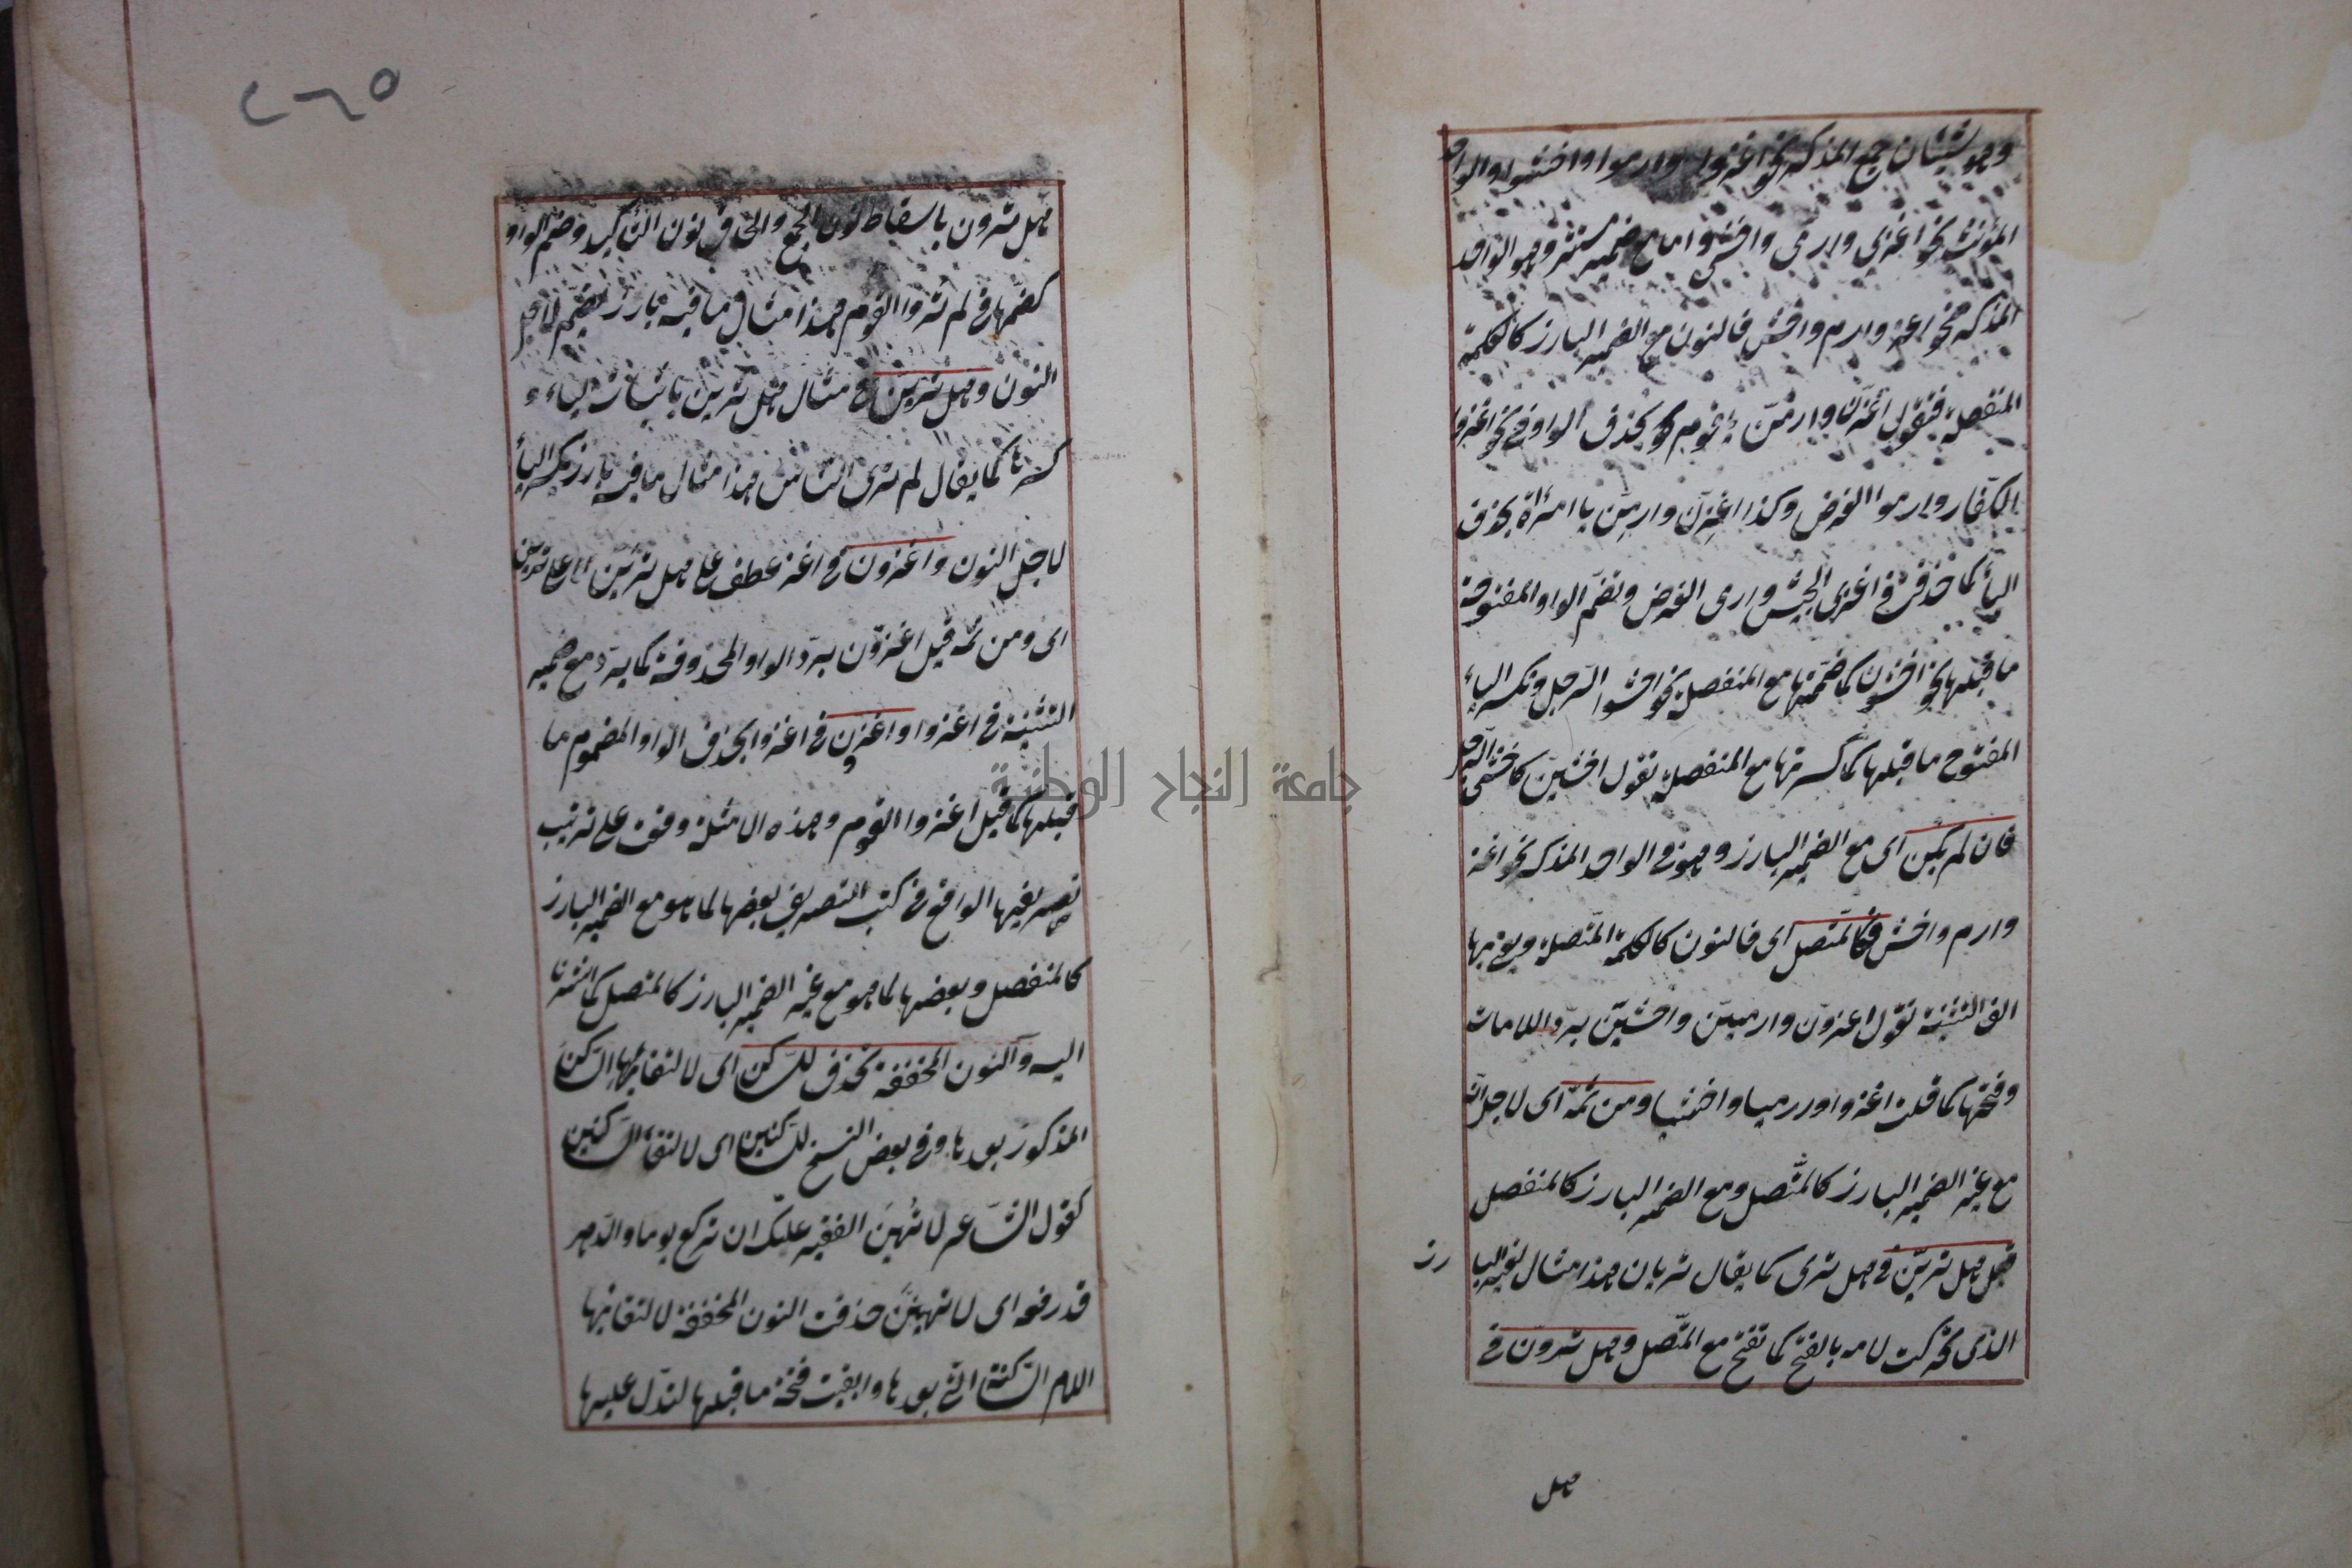 وهو شيئان جمع المذكر نحو اغزوا وارموا واخشوا والواحد
المؤنث نحو اغزى وارمى واخشى واما مع ضمير مستتر وهو الواحد
المذكر نحو اغز وارم واخش فالنون مع الضمير البارز كالكلمة
المنفصلة فتقول اغزن وارمن يا قوم بحذف الواو فى نحو اغزوا
الكفار وارموا الغرض وكذا اغزن وارمن يا امرأة بحذف
اليأ كما حذفت فى اغزى الجيش وارمى الغرض وتضم الواو المفتوحة
ما قبلها نحو اخشون كما ضممتها مع المنفصلة نحو اخشوا الرجل وتكسر الياء
المفتوح ما قبلها كما كسرتها مع المنفصلة تقول اخشين كاخشى الرجل
فان لم يكن اى مع الضمير البارز وهو فى الواحد المذكر نحو اغز
وارم واخش فكالمتصل اى فالنون كالكلمة المتصلة ويعنى بها
الف التثنية تقول اغزون وارمين واخشين برد اللامات
وفتحها كما قلت اغزوا وارميا واخشيا ومن ثمة اى لاجل انه
مع غير الضمير البارز كالمتصل ومع الضمير البارز كالمنفصل
قيل هل ترين فى هل ترى كما يقال تريان هذا مثال لغير البا
رز
الذى تحركت لامه بالفتح كما تفتح مع المتصل وهل ترون فى
هل
٢٦٥
هل ترون باسقاط نون الجمع والحاق نون التأكيد وضم الواو
كضمها فى لم تروا القوم هذا مثال ما فيه بارز يضم لاجل
النون وهل ترين فى مثال هل ترين باثبات الياء و
كسرها كما يقال لم ترى الناس هذا مثال ما فيه بارز بكسر اليأ
لاجل النون واغزون فى اغز عطف على هل ترين اى على ترين
اى ومن ثمه قيل اغزون برد الواو المحذوفة كما يرد مع ضمير
التثنية فى اغزوا واغزن فى اغزوا بحذف الواو المضموم ما
قبلها كما قيل اغزوا القوم وهذه الامثلة وقعت على ترتيب
تصريفها الواقع فى كتب التصريف بعضها لما هو مع الضمير البارز
كالمنفصل وبعضها لما هو مع غير الضمير البارز كالمتصل كما اشرنا
اليه والنون المخففة تحذف للساكن اى لالتقائها الساكن
المذكور بعدها وفى بعض النسخ للساكنين اى لالتقاء الساكنين
كقول الشاعر لا تهين الفقير علك ان تركع يوما والدهر
قد رفعه اى لا تهينن حذفت النون المخففة لالتقائها
اللام الساكنة التى بعدها وابقيت فتحة ما قبلها لتدل عليها
جامعة النجاح الوطنية